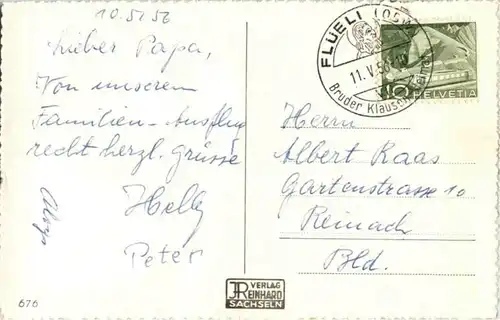 10.5.56
Lieber Papa,
Von unserem
Familien-Ausflug
recht herzl. Grüsse
Helly
Peter
FLÜELI (OBW.)
11.V.56
Bruder Klausen
10
HELVETIA
Herrn
Albert Raas
Gartenstrasse 10
Reinach
Bld.
VERLAG
REINHARD
SACHSELN
676